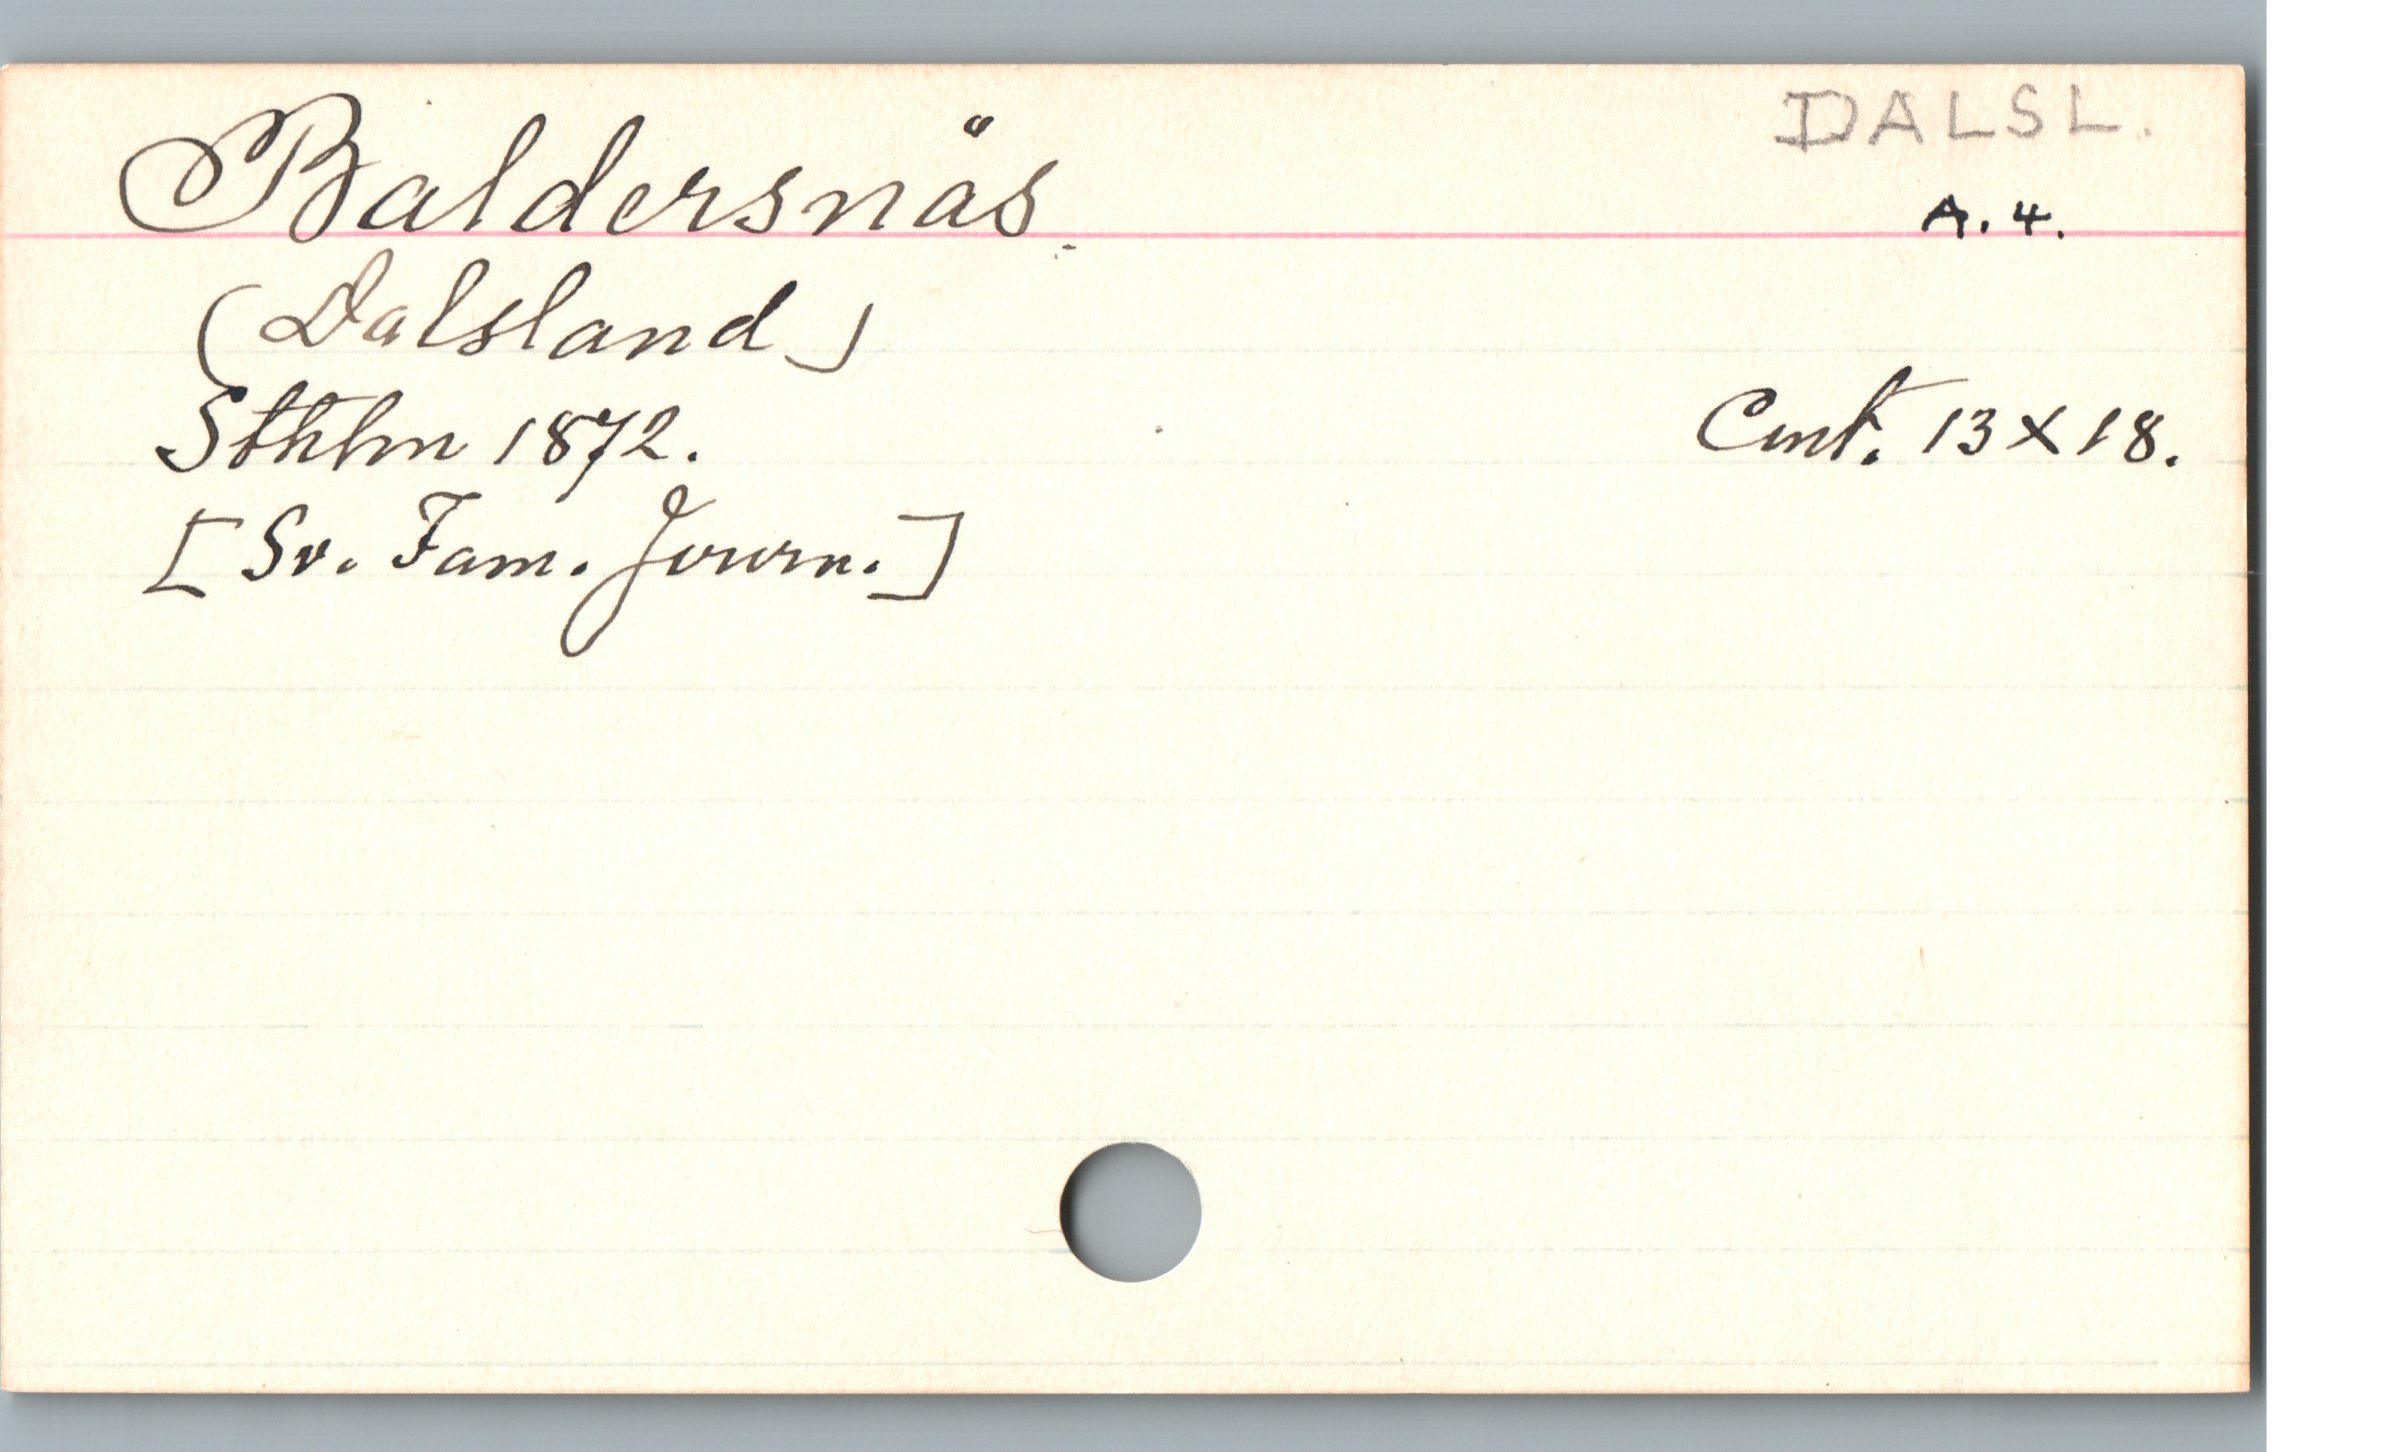 DALSL.
Baldersnäs.
A. 4.
(Dalsland)
Sthlm 1872.
Cmt. 13 X 18.
[Sv. Fam. Journ.]